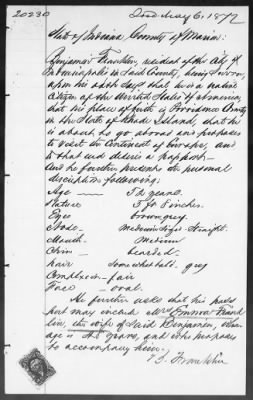 20230
Issd May 6, 1872
State of Indiana County of Marion:
Benjamin Franklin, resident of the City of
Indianapolis in said County, being sworn,
upon his oath says that he is a native
citizen of the United States of America,
that his place of birth is Providence County
in the State of Rhode Island, that he
is about to go abroad and proposes
to visit the Continent of Europe, and
to that end desires a passport—
And he further presents his personal
description following:
Age — 52 years.
Stature 5 ft 8 inches.
Eyes brown grey.
Nose - medium size straight.
Mouth - Medium
Chin - bearded.
hair somewhat bald - grey
Complexion - fair
Face - oval.
He further asks that his pass
port may include Mrs Emma Frank
lin, the wife of said Benjamin, whose
age is years, and who proposes
to accompany him.
B. Franklin